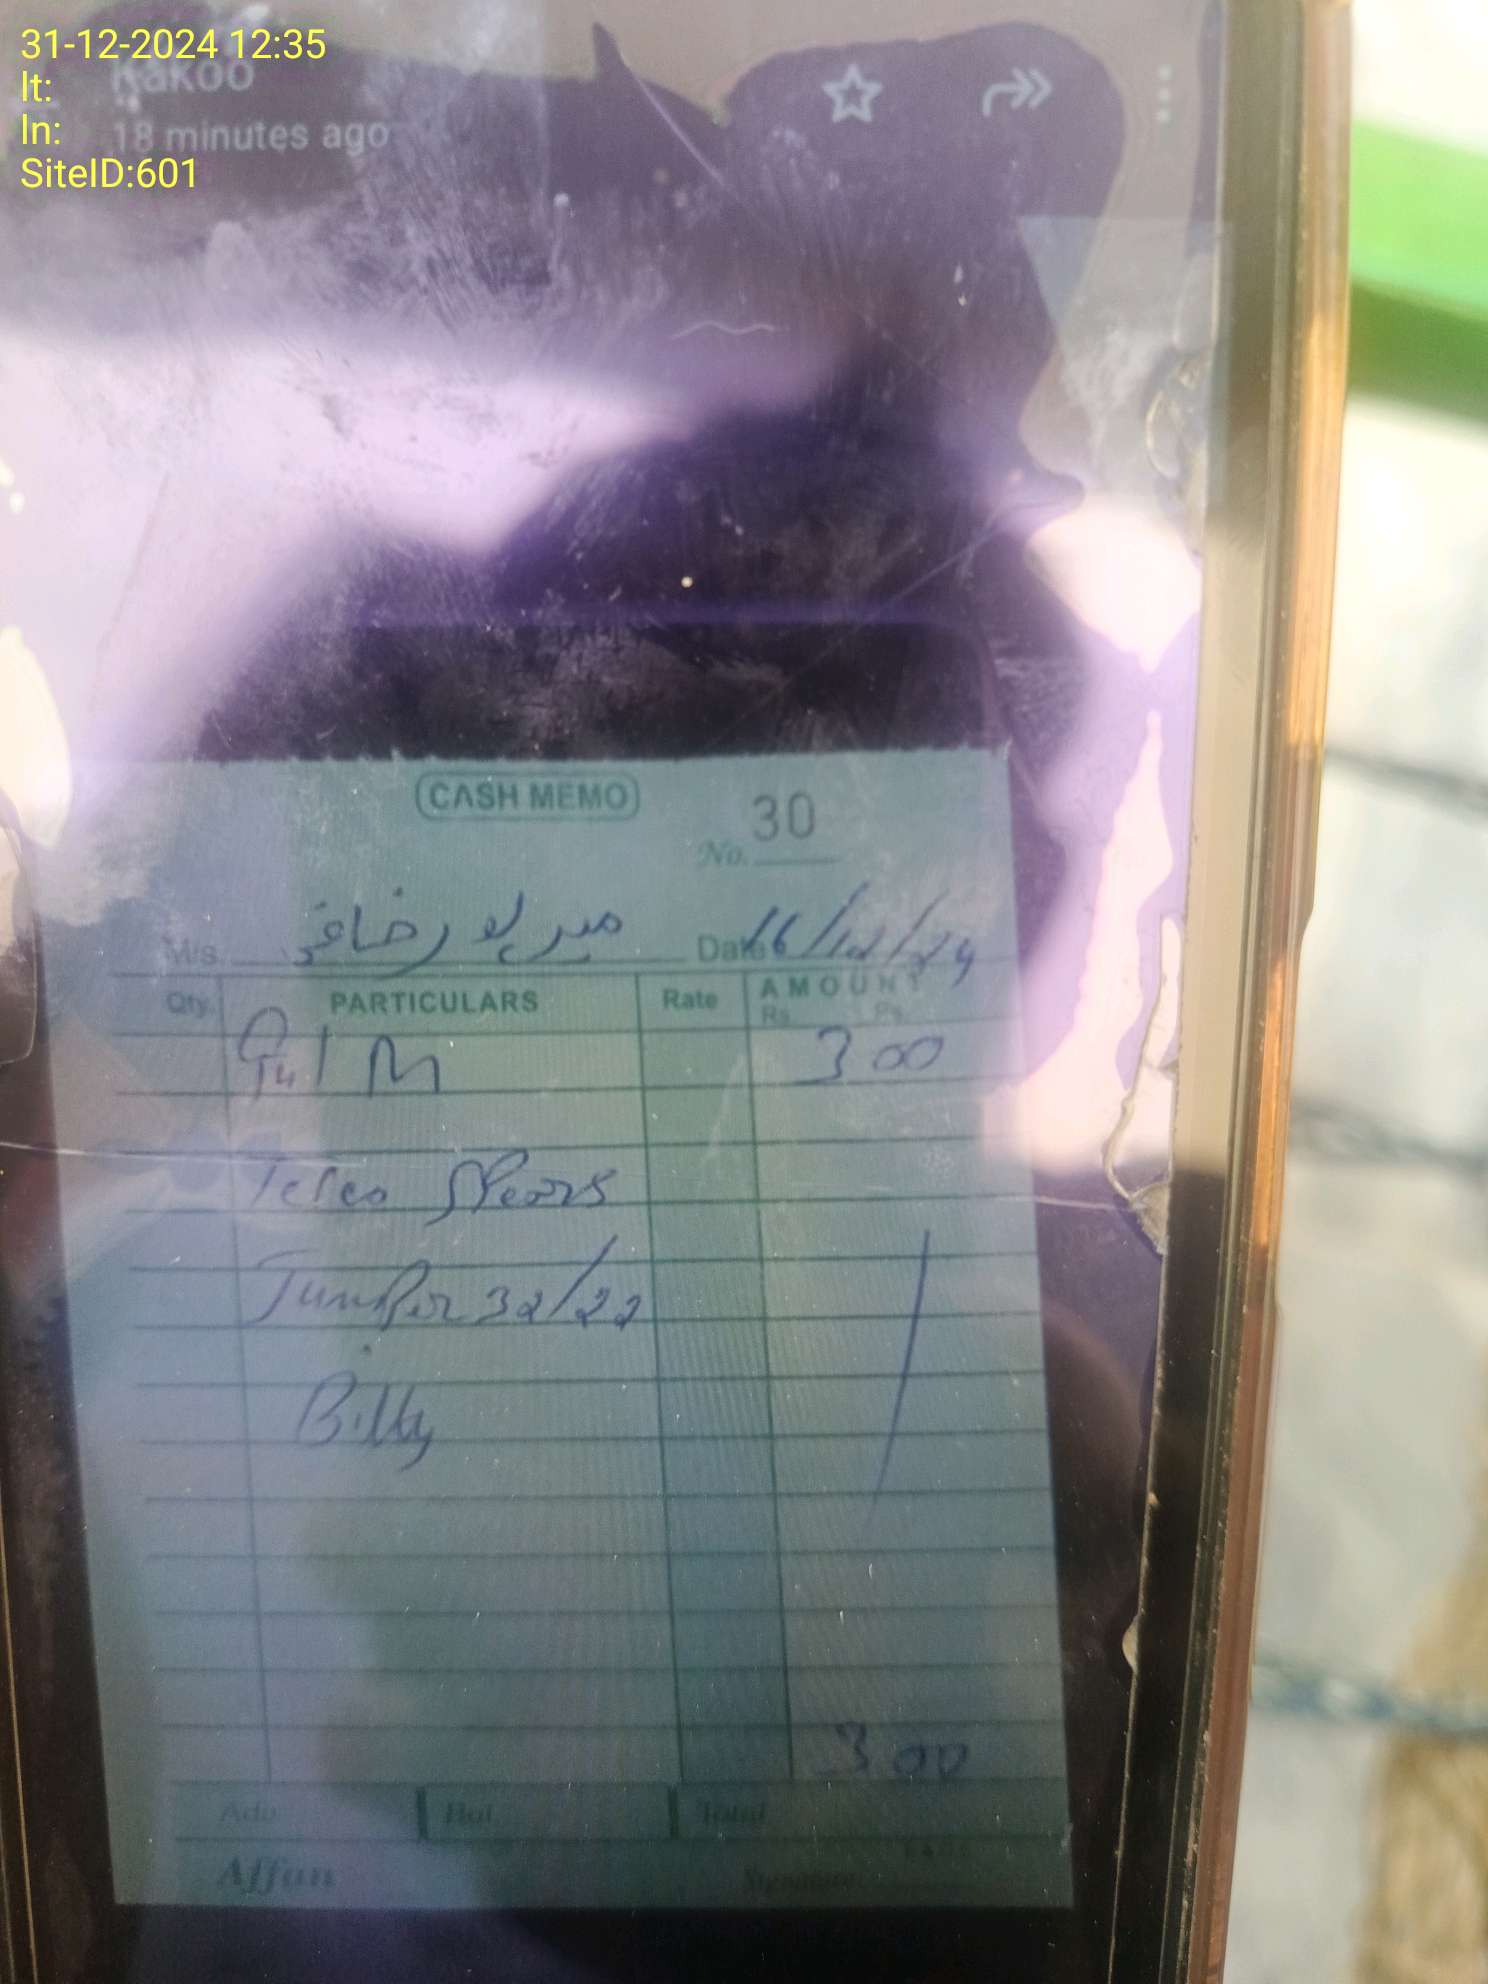 31-12-2024 12:35
lt:
ln:
SiteID:601
Kakoo
18 minutes ago
CASH MEMO
30
No.
M/s میر پور خاص Date 16/12/24
Qty. PARTICULARS Rate AMOUNT
Rs. Ps.
Gul M 300
Telco Spears
Jumper 32/22
Billty
300
Adv Bal Total
Affan Signature